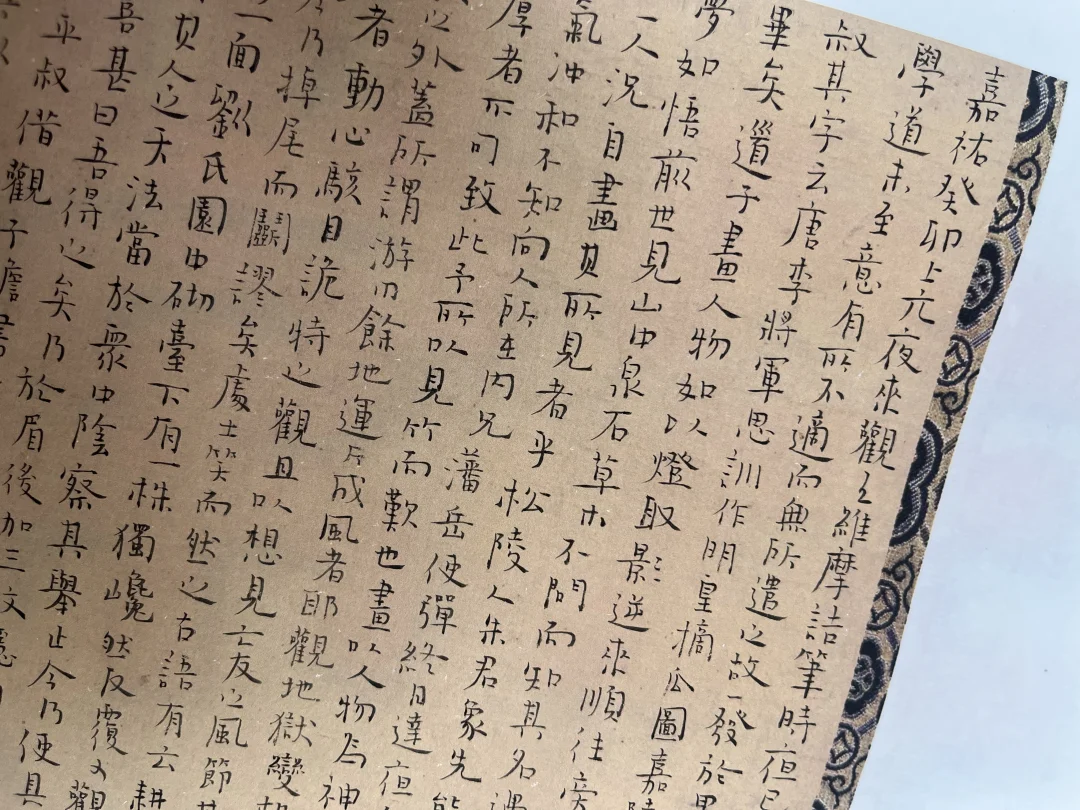 嘉祐癸卯上元夜來觀王維摩詰筆時夜已
學道未至意有所不適而無所遣之故一發於
叔其字云唐李將軍思訓作明皇摘瓜圖嘉陵
畢矣道子畫人物如以燈取影逆來順往旁
夢如悟前世見山中泉石草木不問而知其名遇
一人況自畫其所見者乎松陵人朱君象先能
氣沖和不知向人所在内兄潘岳便彈終日達夜
厚者不可致此予所以見竹而歎也畫以人物為神
之外蓋所謂游刃餘地運斤成風者耶觀地獄變
者動心駭目詭特之觀且以想見亡友之風節
乃掉尾而鬭謬矣處士笑而然之古語有云耕
一面劉氏園中砌臺下有一株獨巉然反覆又觀
其人之天法當於衆中陰察其舉止今乃便具
甚曰吾得之矣乃於眉後加三文
平叔借觀子瞻書